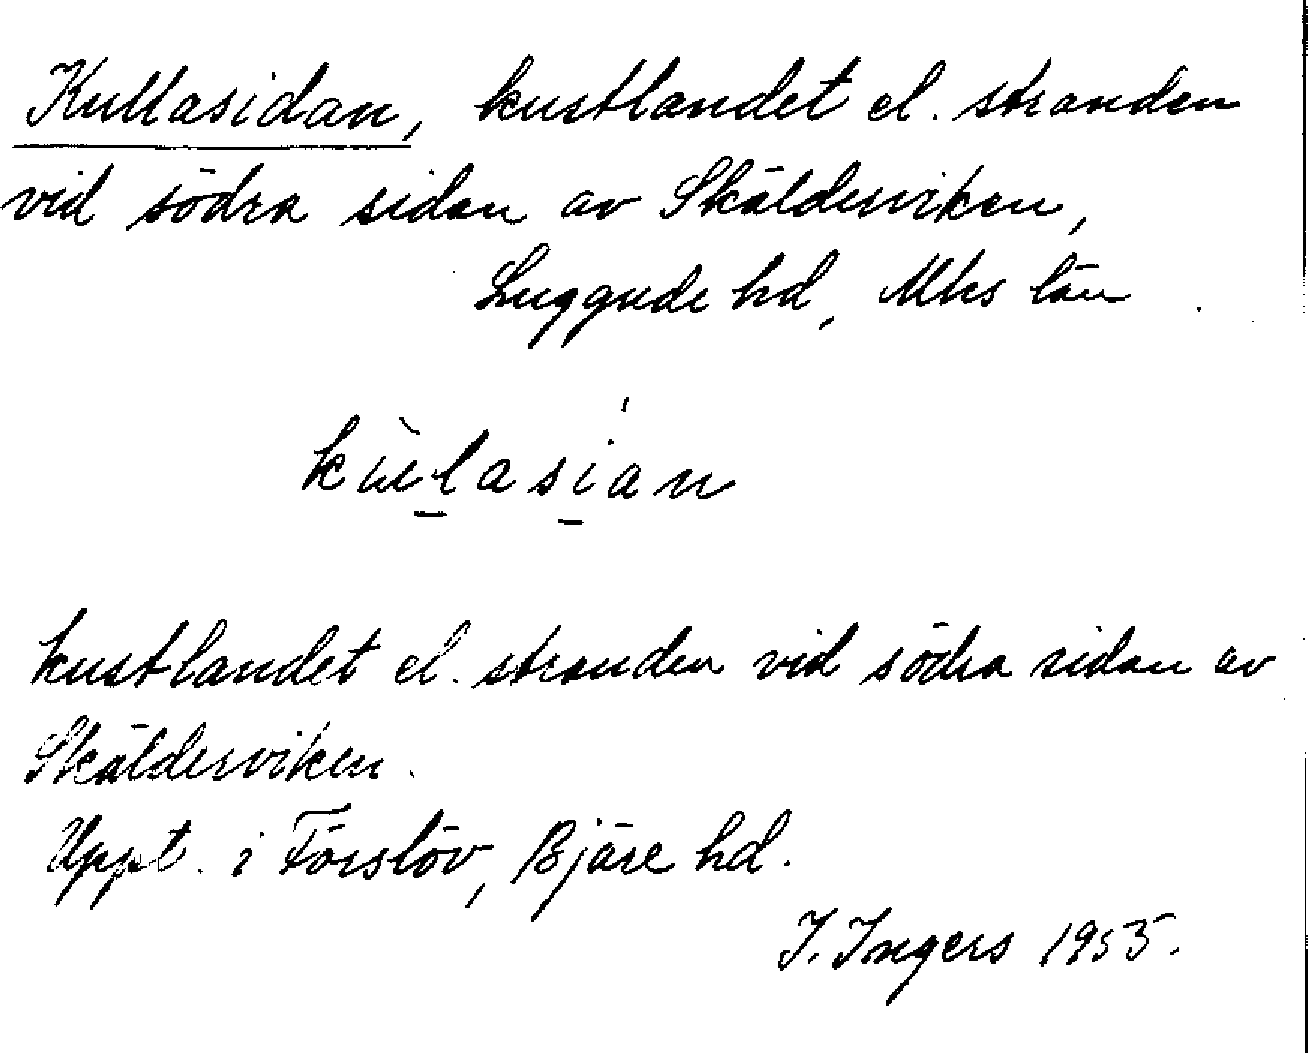 Kullasidan, kustlandet el. stranden
vid södra sidan av Skälderviken,
Luggude hd, Mhs län
kustlandet el. stranden vid södra sidan av
Skälderviken.
Uppt. i Förslöv, Bjäre hd.
I. Ingers 1955.